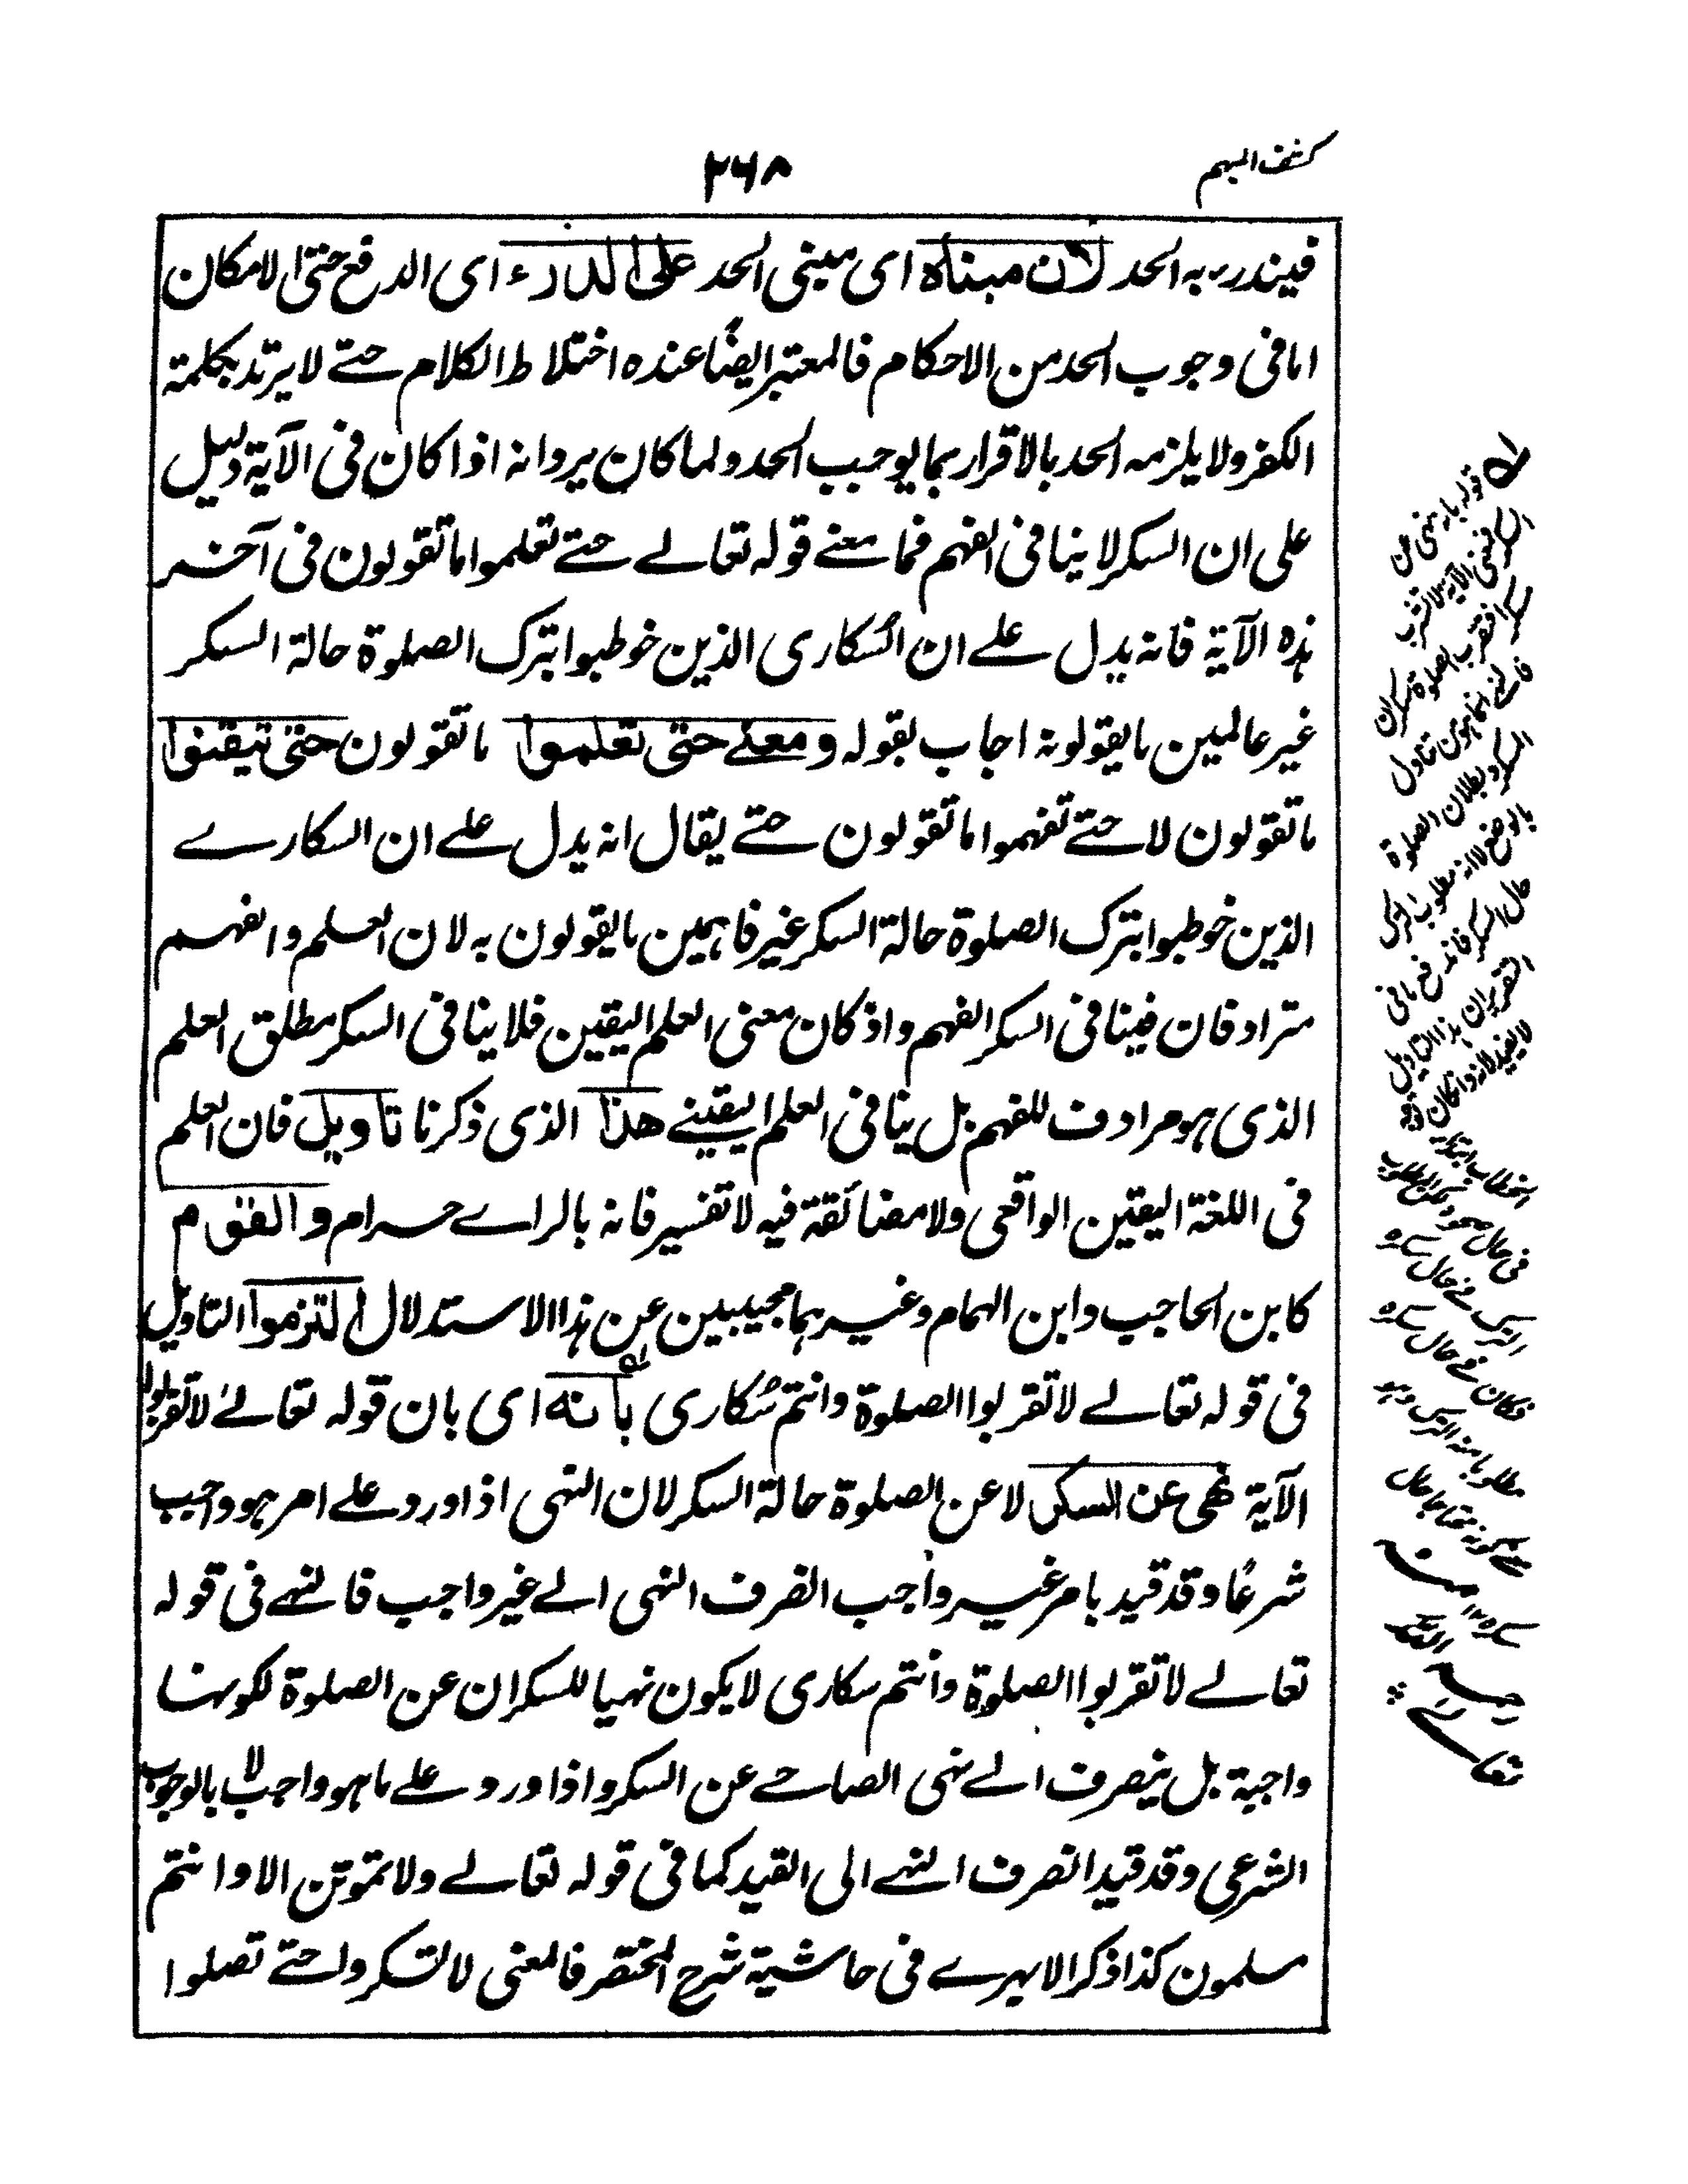 كشف المبهم
٢٦٨
فيندرء به الحد لان مبناه اى مبنى الحد على الدرء اى الدفع حتى الامكان
اما فى وجوب الحد من الاحكام فالمعتبر ايضًا عنده اختلاط الكلام حتے لا يرتد بكلمة
الكفر ولا يلزمه الحد بالاقرار بما يوجب الحد ولما كان يرد انه اذا كان فى الآية دليل
على ان السكر لا ينافى الفهم فما معنے قوله تعالے حتے تعلموا ما تقولون فى آخر
هذه الآية فانه يدل علے ان السُكارى الذين خوطبوا بترك الصلوة حالة السكر
غير عالمين ما يقولونه اجاب بقوله ومعنے حتى تعلموا ما تقولون حتى تيقنوا
ما تقولون لا حتے تفهموا ما تقولون حتے يقال انه يدل علے ان السكارے
الذين خوطبوا بترك الصلوة حالة السكر غير فاهمين ما يقولون به لان العلم والفهم
مترادفان فينافى السكر الفهم واذ كان معنى العلم اليقين فلا ينافى السكر مطلق العلم
الذى هو مرادف للفهم بل ينافى العلم اليقينے هذا الذى ذكرنا تاويل فان العلم
فى اللغة اليقين الواقعى ولا مضائقة فيه لا تفسير فانه بالراے حرام والقوم
كابن الحاجب وابن الهمام وغيرهما مجيبين عن هذا الاستدلال التزموا التاويل
فى قوله تعالے لا تقربوا الصلوة وانتم سُكارى بانه اى بان قوله تعالےٰ لا تقربوا
الآية نهى عن السكر لا عن الصلوة حالة السكر لان النهى اذا ورد علے امر هو واجب
شرعًا وقد قيد بامر غير واجب انصرف النهى الے غير واجب فالنهے فى قوله
تعالے لا تقربوا الصلوة وانتم سكارى لا يكون نهيا للسكران عن الصلوة لكونها
واجبة بل ينصرف الے نهى الصاحے عن السكر واذا ورد علے ما هو واجب لا بالوجوب
الشرعى وقد قيد انصرف النهے الى القيد كما فى قوله تعالے ولا تموتن الا وانتم
مسلمون كذا ذكر الابهرے فى حاشية شرح المختصر فالمعنى لا تسكروا حتے تصلوا
قوله بانه نهى عن
السكر فمعنى الآية لا تشرب
فى حال صحوه
فى حال سكره
سكره ١٢ منه
رحمه الله
تعالے